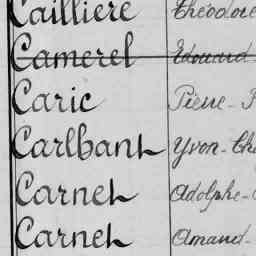 Cailliere Théodore
Camerel Edouard
Caric Pierre - 
Carlbant Yvon - 
Carnet Adolphe - 
Carnet Amand -